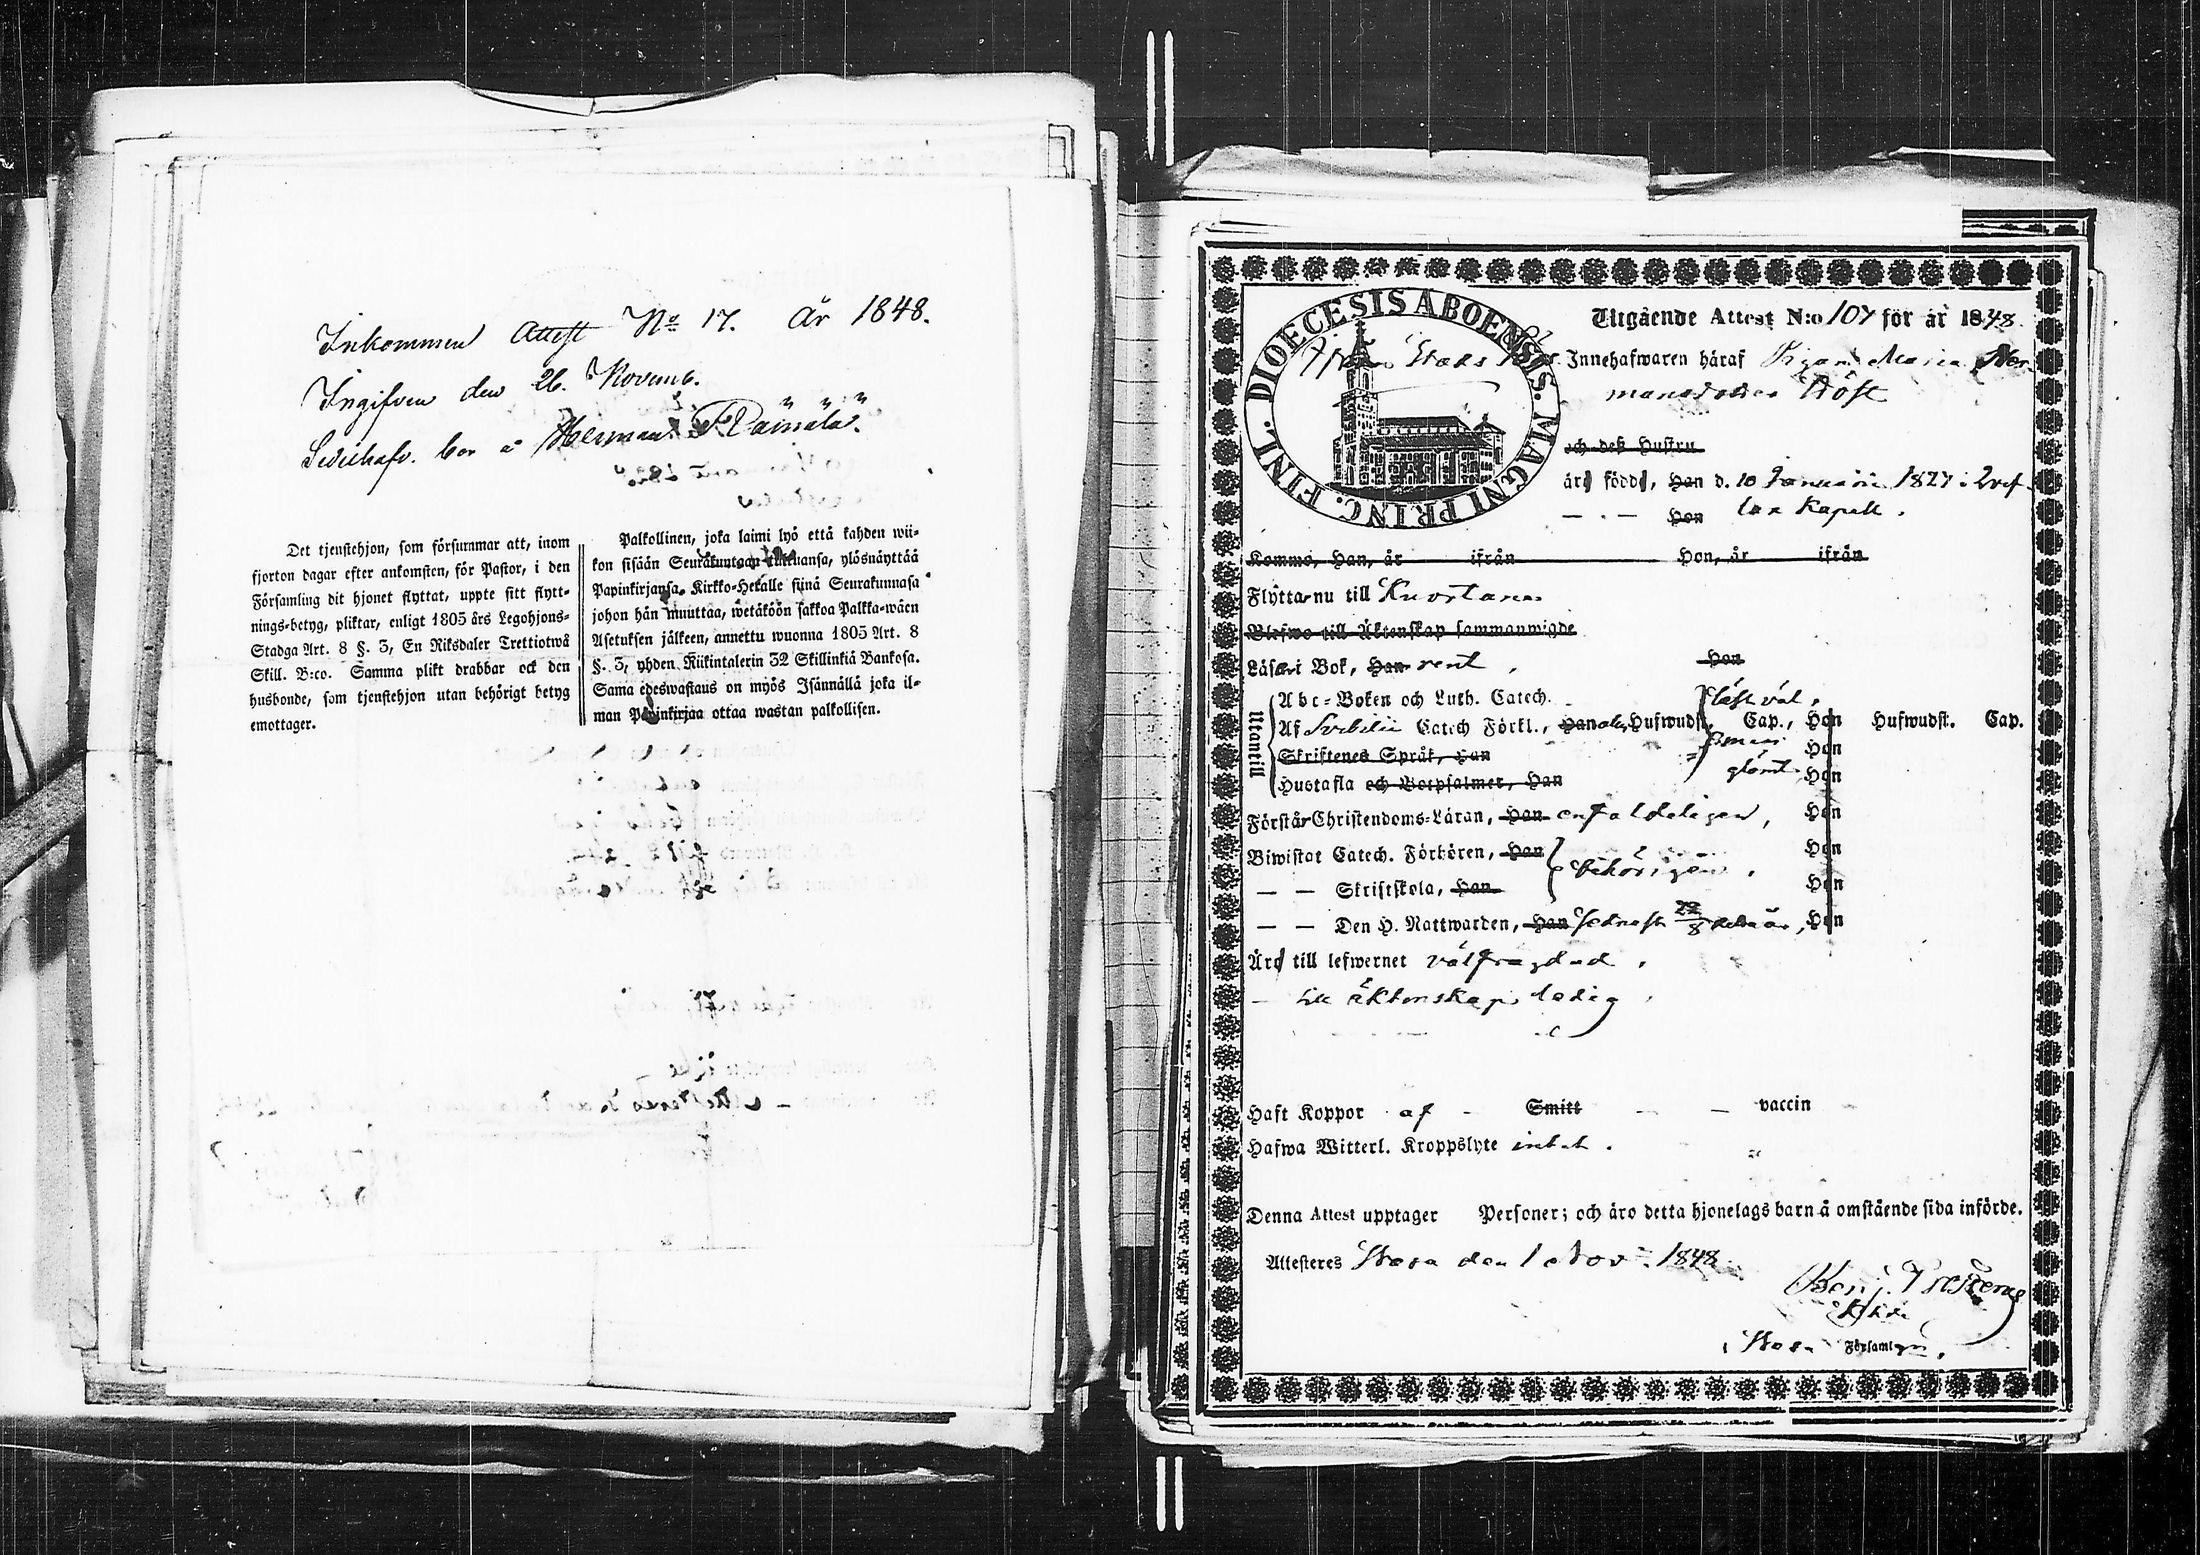 Inkommen Attest No 17. År 1848.
Ingifven den 26. Novemb.
bor å Herman
Det tjenstehjon, som försummar att, inom
fjorton dagar efter ankomsten, för Pastor, i den
Församling dit hjonet flyttat, uppte sitt flytt-
nings-betyg, pliktar, enligt 1805 års Legohjons-
Stadga Art. 8 §. 3, En Riksdaler Trettiotwå
Skill. B:co. Samma plikt drabbar ock den
husbonde, som tjenstehjon utan behörigt betyg
emottager.
Palkollinen, joka laimi lyö että kahden wii-
kon sisään Seurakuntaan tultuansa, ylösnäyttää
Papinkirjansa Kirkko-Herralle siinä Seurakunnasa
johon hän muuttaa, wetäköön sakkoa Palkka-wäen
Asetuksen jälkeen, annettu wuonna 1805 Art. 8
§. 3, yhden Riikintalerin 32 Skillinkiä Bankosa.
Sama edeswastaus on myös Isännällä joka il-
man Papinkirjaa ottaa wastan palkollisen.
DIOECESIS ABOENSIS. MAGNI PRINC. FINL.
Utgående Attest N:o 107 för år 1848.
Innehafwaren häraf Maria Her-
mansdotter
och dess Hustru
äro födde, Han d. 10 Januarii 1827 i
Hon lax Kapell.
Komme, Han, år ifrån Hon, år ifrån
Flytta nu till Kuortane
Blefwo till Äktenskap sammanwigde
Läsa i Bok, Han rent, Hon
Utantill
Abc-Boken och Luth. Catech. läst väl,
Af Svebilii Catech Förkl., Han Hufwudst. Cap., Hon Hufwudst. Cap.
Skriftenes Språk, Han Hon
Hustafla och Botpsalmer, Han glömt Hon
Förstår Christendoms-Läran, Han enfaldeligen, Hon
Biwistat Catech. Förhören, Han behörigen. Hon
— — Skriftskola, Han Hon
— — Den H. Nattwarden, Han sednast 22/8 detta år, Hon
Äro till lefwernet välfrägdad.
— till äktenskap ledig
Haft Koppor af Smitt — — vaccin
Hafwa Witterl. Kroppslyte intet.
Denna Attest upptager Personer; och äro detta hjonelags barn å omstående sida införde.
Attesteres den 1 Nov. 1848.
Benj.
Församling.